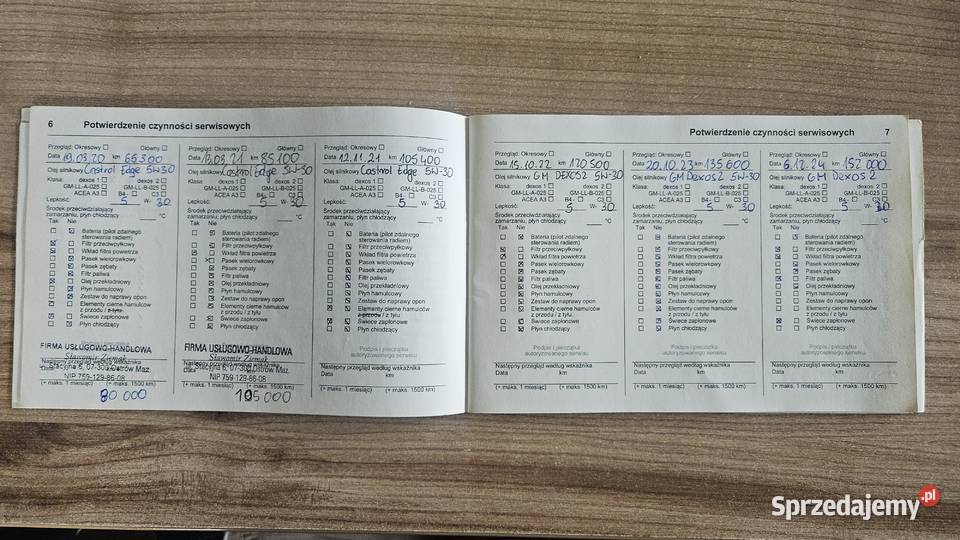 6 Potwierdzenie czynności serwisowych
Przegląd: Okresowy Główny
Data 19.03.20 km 65300
Olej silnikowy Castrol Edge 5W30
Klasa: dexos 1 dexos 2
GM-LL-A-025 GM-LL-B-025
ACEA A3 B4 - C3
Lepkość: 5 W- 30
Środek przeciwdziałający
zamarzaniu, płyn chłodzący °C
Tak Nie
Bateria (pilot zdalnego
sterowania radiem)
Filtr przeciwpyłkowy
Wkład filtra powietrza
Pasek wielorowkowy
Pasek zębaty
Filtr paliwa
Olej przekładniowy
Płyn hamulcowy
Zestaw do naprawy opon
Elementy cierne hamulców
z przodu / z tyłu
Świece zapłonowe
Płyn chłodzący
FIRMA USŁUGOWO-HANDLOWA
Następny przegląd według wskaźnika
Stacyjna 6, 07-300 Ostrów Maz.
NIP 759-129-86-08
(+ maks. 1 miesiąc) (+ maks. 1500 km)
80 000
Przegląd: Okresowy Główny
Data 13.03.21 km 85100
Olej silnikowy Castrol Edge 5W-30
Klasa: dexos 1 dexos 2
GM-LL-A-025 GM-LL-B-025
ACEA A3 B4 - C3
Lepkość: 5 W- 30
Środek przeciwdziałający
zamarzaniu, płyn chłodzący °C
Tak Nie
Bateria (pilot zdalnego
sterowania radiem)
Filtr przeciwpyłkowy
Wkład filtra powietrza
Pasek wielorowkowy
Pasek zębaty
Filtr paliwa
Olej przekładniowy
Płyn hamulcowy
Zestaw do naprawy opon
Elementy cierne hamulców
z przodu / z tyłu
Świece zapłonowe
Płyn chłodzący
FIRMA USŁUGOWO-HANDLOWA
Następny przegląd według wskaźnika
Stacyjna 6, 07-300 Ostrów Maz.
NIP 759-129-86-08
(+ maks. 1 miesiąc) (+ maks. 1500 km)
105000
Przegląd: Okresowy Główny
Data 12.11.21 km 105400
Olej silnikowy Castrol Edge 5W-30
Klasa: dexos 1 dexos 2
GM-LL-A-025 GM-LL-B-025
ACEA A3 B4 - C3
Lepkość: 5 W- 30
Środek przeciwdziałający
zamarzaniu, płyn chłodzący °C
Tak Nie
Bateria (pilot zdalnego
sterowania radiem)
Filtr przeciwpyłkowy
Wkład filtra powietrza
Pasek wielorowkowy
Pasek zębaty
Filtr paliwa
Olej przekładniowy
Płyn hamulcowy
Zestaw do naprawy opon
Elementy cierne hamulców
z przodu / z tyłu
Świece zapłonowe
Płyn chłodzący
Podpis i pieczątka
autoryzowanego serwisu
Następny przegląd według wskaźnika
Data km
(+ maks. 1 miesiąc) (+ maks. 1500 km)
Potwierdzenie czynności serwisowych 7
Przegląd: Okresowy Główny
Data 15.10.22 km 120500
Olej silnikowy GM DEXOS2 5W-30
Klasa: dexos 1 dexos 2
GM-LL-A-025 GM-LL-B-025
ACEA A3 B4 - C3
Lepkość: 5 W- 30
Środek przeciwdziałający
zamarzaniu, płyn chłodzący °C
Tak Nie
Bateria (pilot zdalnego
sterowania radiem)
Filtr przeciwpyłkowy
Wkład filtra powietrza
Pasek wielorowkowy
Pasek zębaty
Filtr paliwa
Olej przekładniowy
Płyn hamulcowy
Zestaw do naprawy opon
Elementy cierne hamulców
z przodu / z tyłu
Świece zapłonowe
Płyn chłodzący
Podpis i pieczątka
autoryzowanego serwisu
Następny przegląd według wskaźnika
Data km
(+ maks. 1 miesiąc) (+ maks. 1500 km)
Przegląd: Okresowy Główny
Data 20.10.23 km 135600
Olej silnikowy GM Dexos2 5W-30
Klasa: dexos 1 dexos 2
GM-LL-A-025 GM-LL-B-025
ACEA A3 B4 - C3
Lepkość: 5 W- 30
Środek przeciwdziałający
zamarzaniu, płyn chłodzący °C
Tak Nie
Bateria (pilot zdalnego
sterowania radiem)
Filtr przeciwpyłkowy
Wkład filtra powietrza
Pasek wielorowkowy
Pasek zębaty
Filtr paliwa
Olej przekładniowy
Płyn hamulcowy
Zestaw do naprawy opon
Elementy cierne hamulców
z przodu / z tyłu
Świece zapłonowe
Płyn chłodzący
Podpis i pieczątka
autoryzowanego serwisu
Następny przegląd według wskaźnika
Data km
(+ maks. 1 miesiąc) (+ maks. 1500 km)
Przegląd: Okresowy Główny
Data 6.12.24 km 152000
Olej silnikowy GM Dexos 2
Klasa: dexos 1 dexos 2
GM-LL-A-025 GM-LL-B-025
ACEA A3 B4 - C3
Lepkość: 5 W- 30
Środek przeciwdziałający
zamarzaniu, płyn chłodzący °C
Tak Nie
Bateria (pilot zdalnego
sterowania radiem)
Filtr przeciwpyłkowy
Wkład filtra powietrza
Pasek wielorowkowy
Pasek zębaty
Filtr paliwa
Olej przekładniowy
Płyn hamulcowy
Zestaw do naprawy opon
Elementy cierne hamulców
z przodu / z tyłu
Świece zapłonowe
Płyn chłodzący
Podpis i pieczątka
autoryzowanego serwisu
Następny przegląd według wskaźnika
Data km
(+ maks. 1 miesiąc) (+ maks. 1500 km)
Sprzedajemy.pl